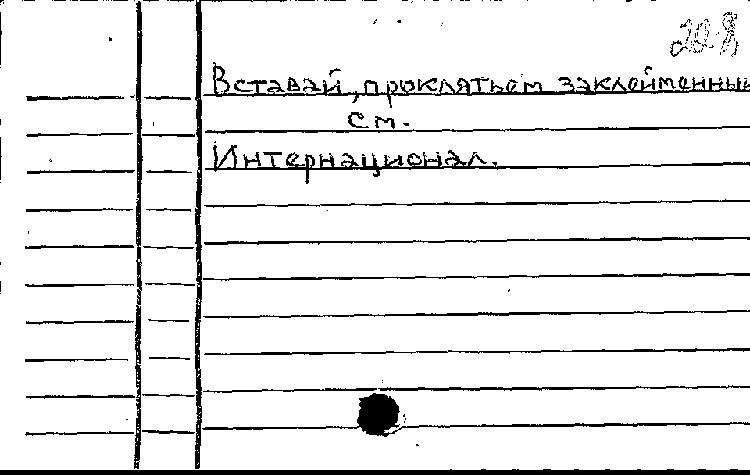 Вставай, проклятьем заклеймённый
см.
Интернационал.